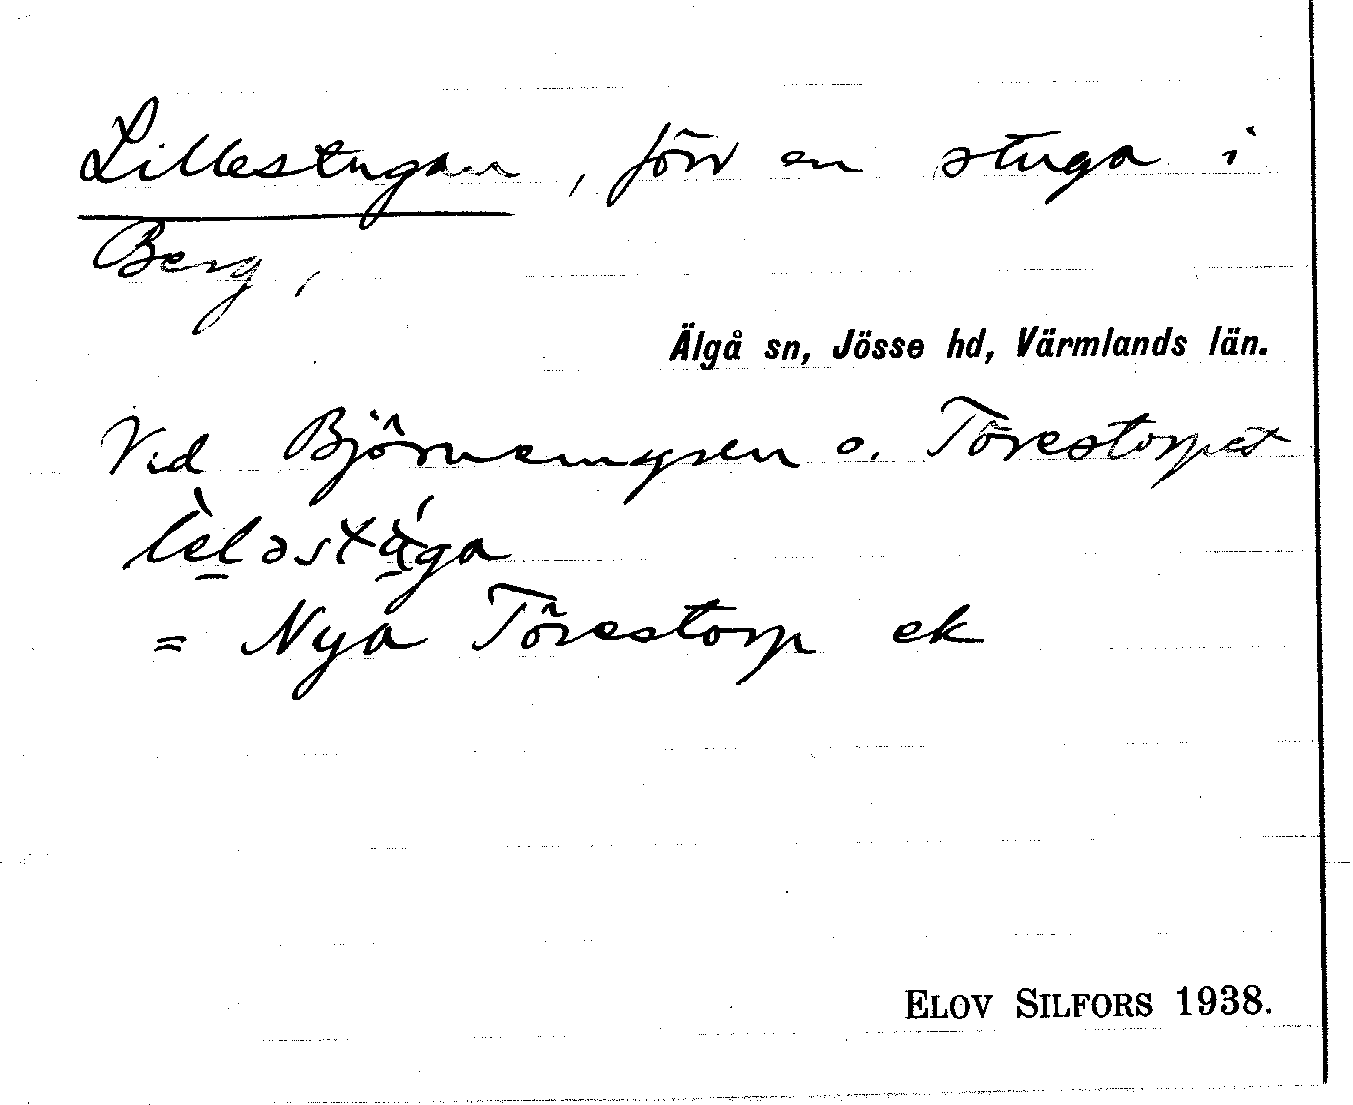 Lillestugan, förr en stuga i
Berg,
Älgå sn, Jösse hd, Värmlands län.
Vid Björnemyren o. Törestorpet
= Nya Törestorp ek
ELOV SILFORS 1938.